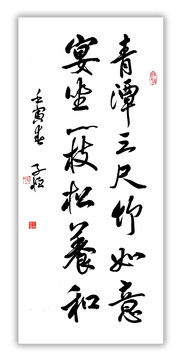 青潭三尺竹如意
宴坐一枝松養和
壬寅春 子恒